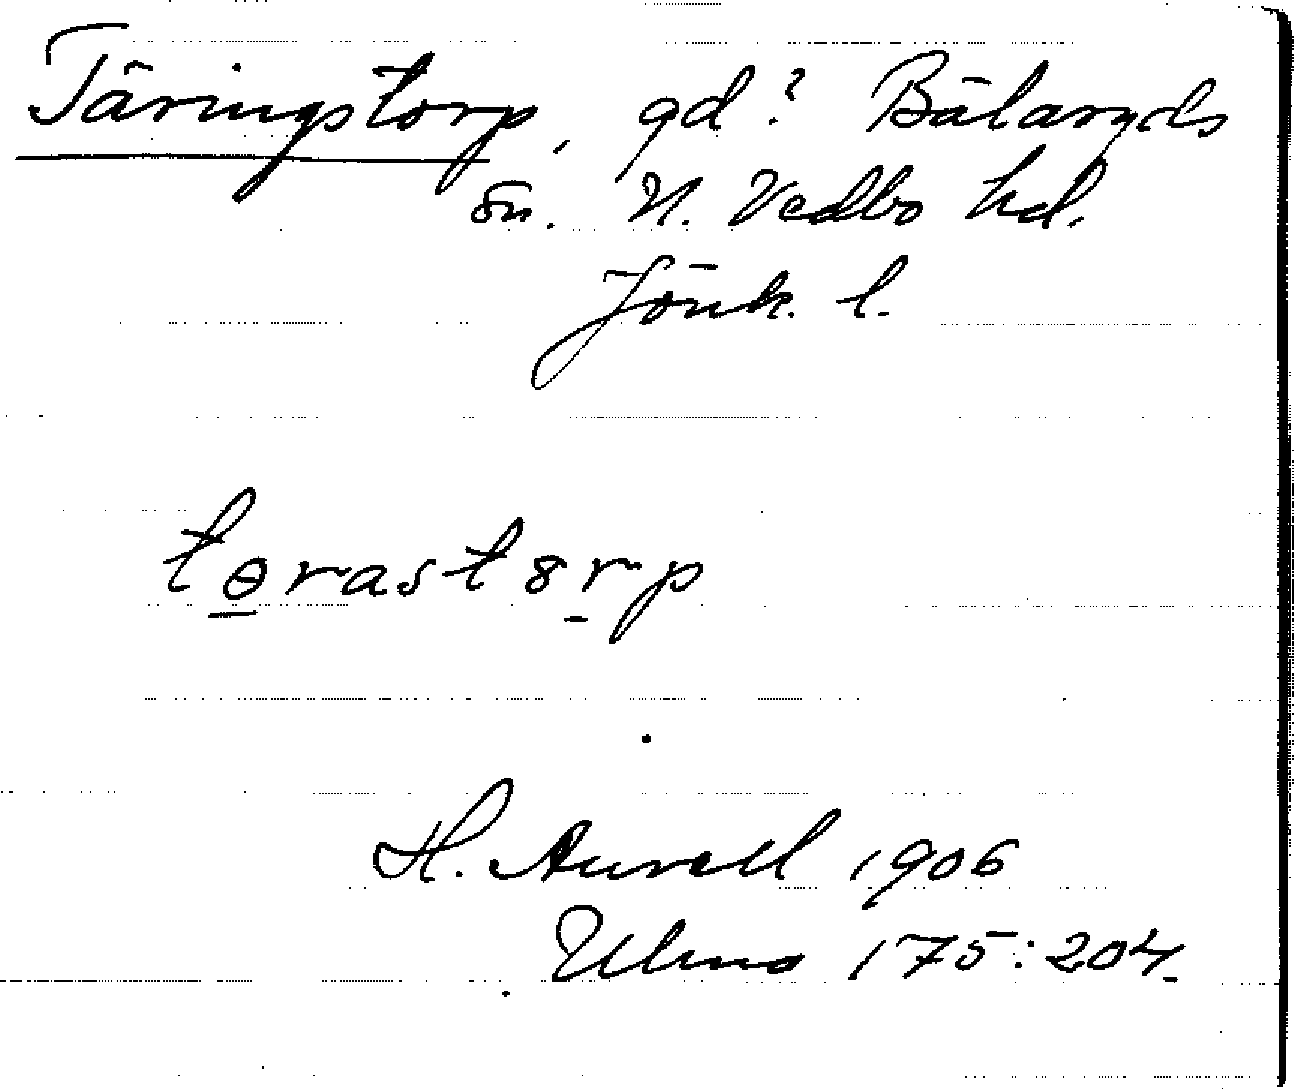 Täringstorp, gd? Bälaryds
sn. N. Vedbo hd.
Jönk. l.
tɵrastȣrp
H. Aurell 1906
Ulma 175:204.